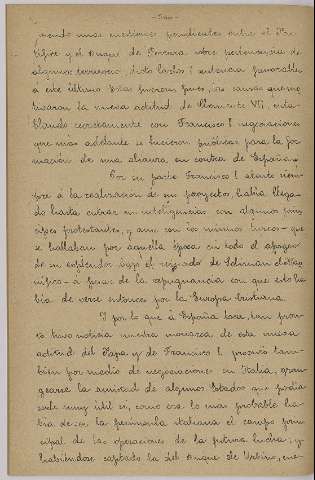 biendo unas cuestiones pendientes entre el Pon-
tífice y el Duque de Ferrara sobre pertenencia de
algunos terrenos, dictó Carlos I sentencia favorable
á este último. Estas fueron pues, las causas que mo-
tivaron la nueva actitud de Clemente VII, enta-
blando secretamente con Francisco I negociaciones
que mas adelante se hicieron públicas para la for-
mación de una alianza en contra de España.
Por su parte Francisco I atento siem-
pre á la realización de sus proyectos había llega-
do hasta entrar en inteligencias con algunos prín-
cipes protestantes, y aun con los mismos turcos que
se hallaban por aquella época en todo el apogeo
de su esplendor bajo el reinado de Soliman el Mag-
nífico á pesar de la repugnancia con que esto ha-
bía de verse entonces por la Europa cristiana.
Y por lo que á España toca, tan pron-
to tuvo noticia nuestro monarca de esta nueva
actitud del Papa y de Francisco I, procuró tam-
bién por medio de negociaciones en Italia, gran-
gearse la amistad de algunos Estados que podía
serle muy útil si, como era lo mas probable ha-
bía de ser la península italiana el campo prin-
cipal de las operaciones de la futura lucha; y
habiéndose captado la del Duque de Urbino, ene-